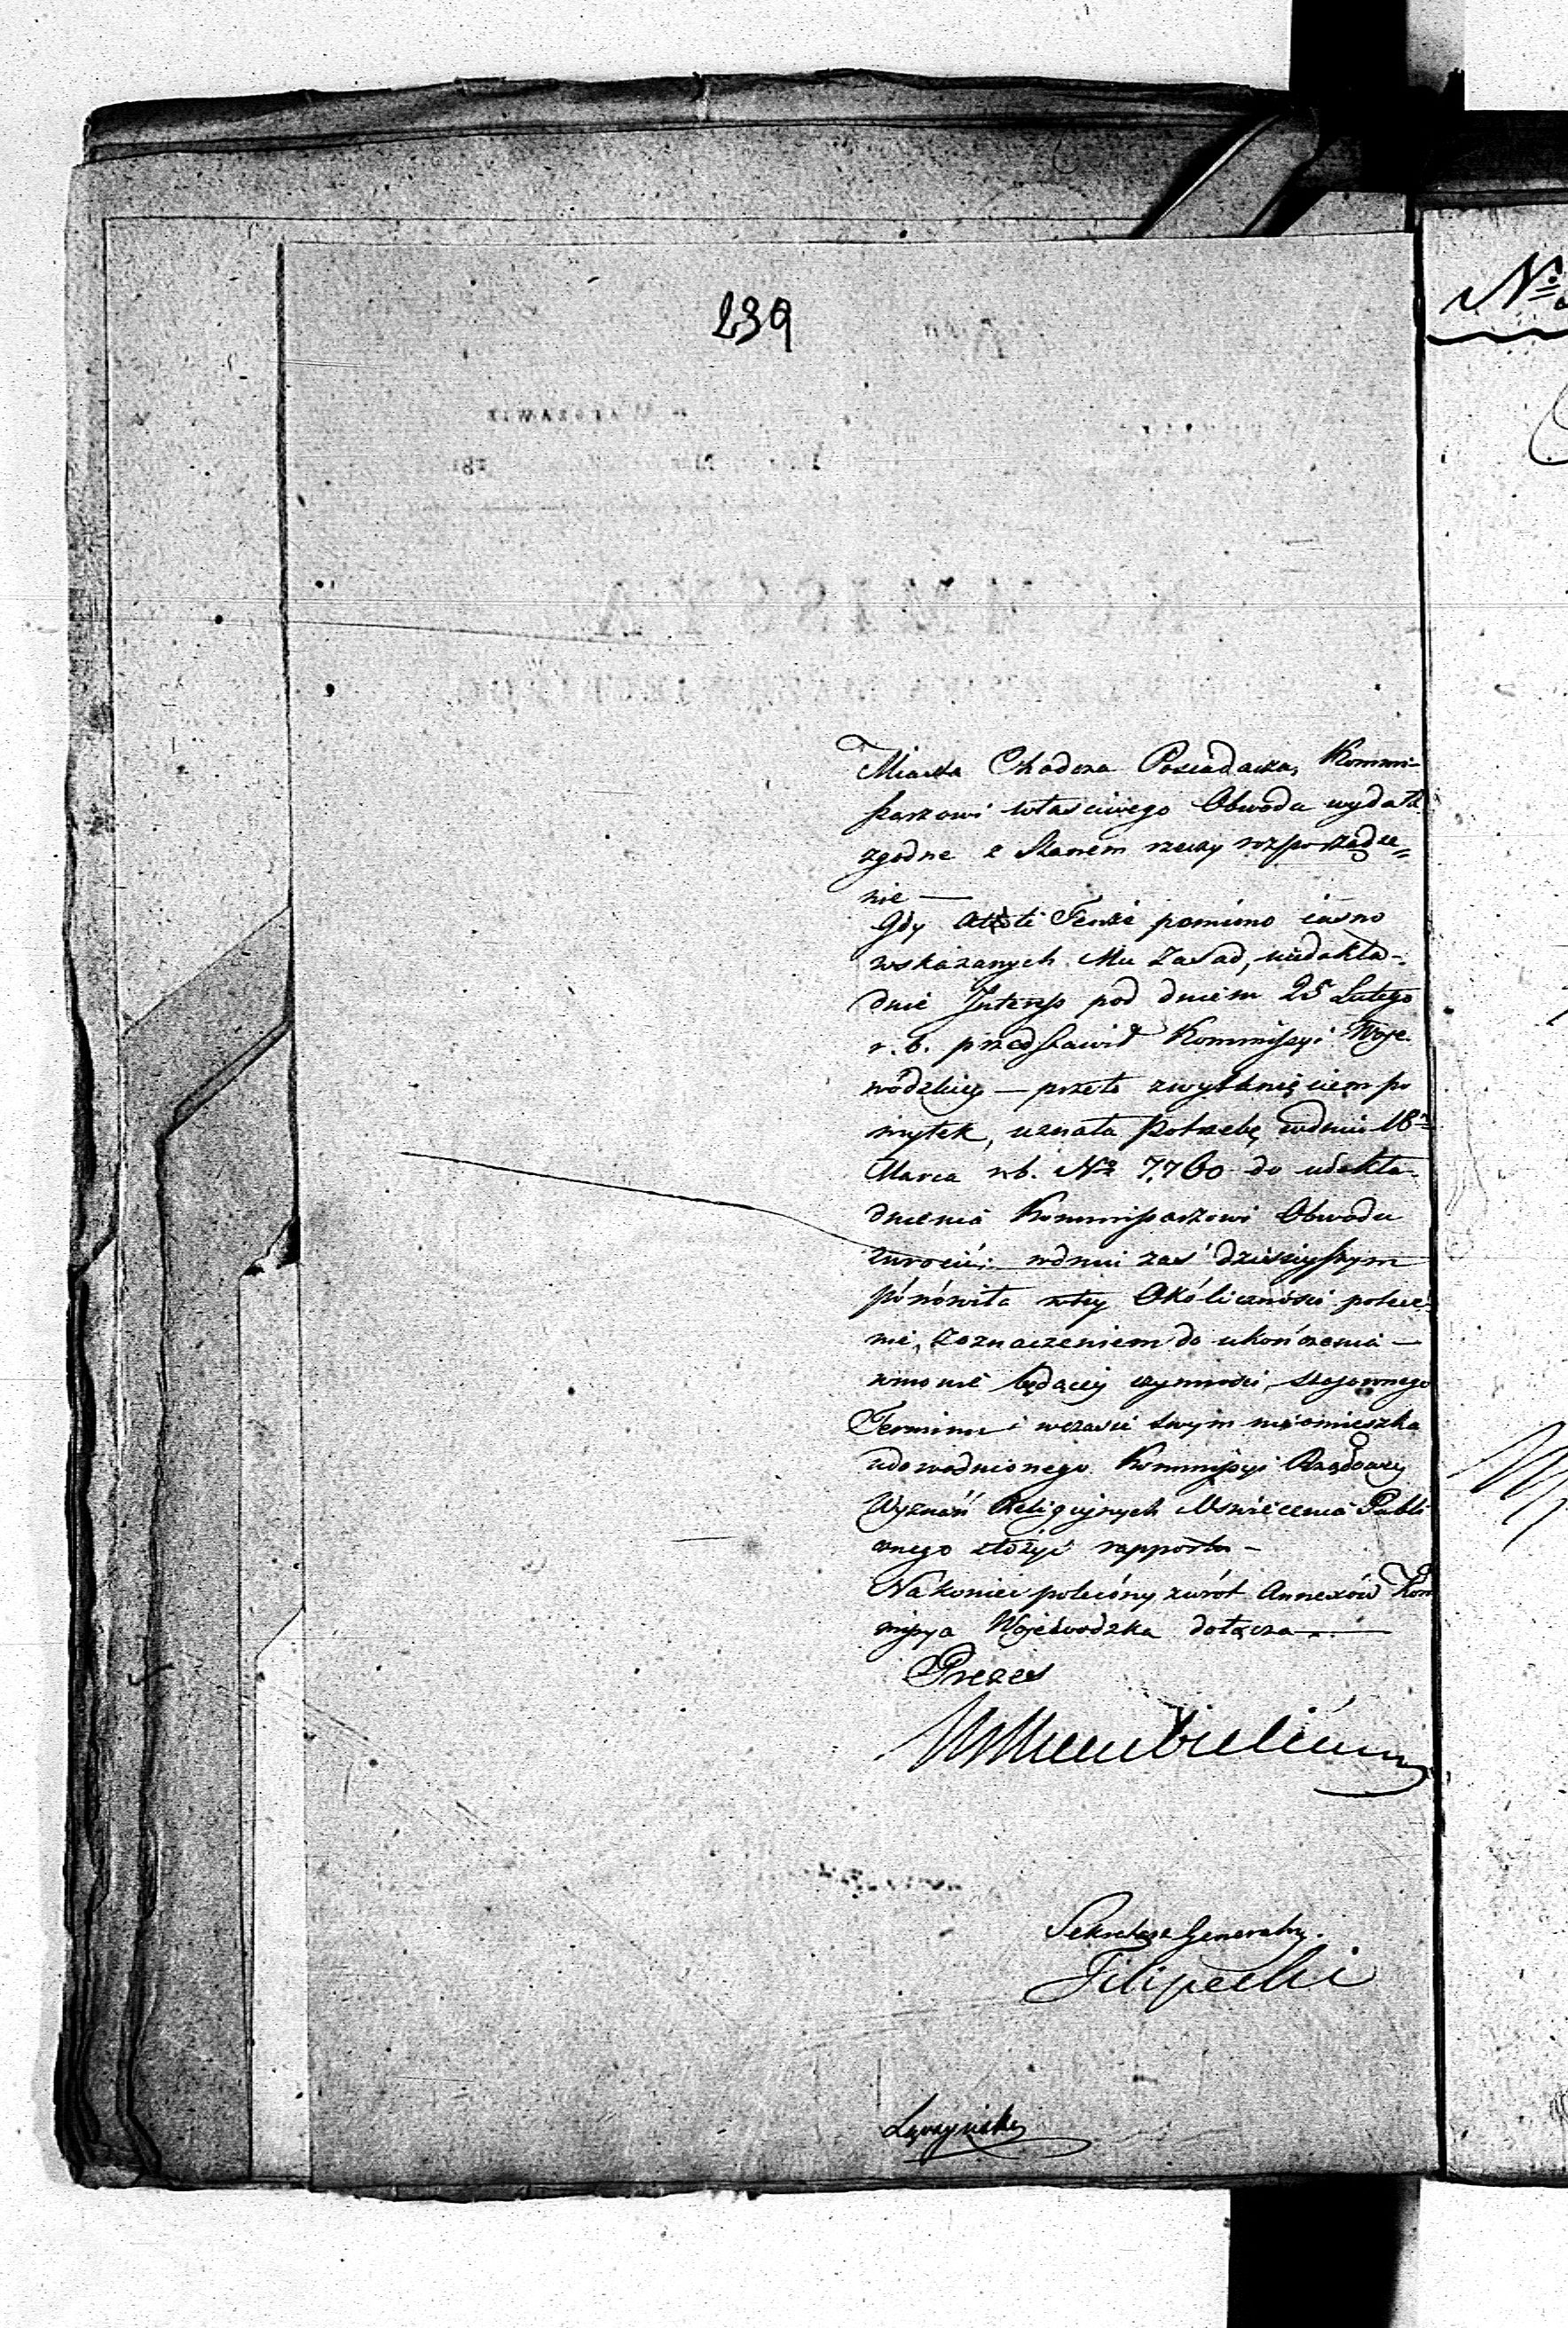 239
Miasta Chodcza Posiadacza, Kommi-
ssarzowi właściwego Obwodu wydała
zgodne z Stanem rzeczy rozporządze-
nie —
Gdy atoli Tenże pomimo iasno
wskazanych Mu Zasad, niedokła-
dnie Interess pod dniem 25 Lutego
r. b. przedstawił Kommissyi Woje-
wódzkiey — przeto z wytknięciem po
myłek, uznała potrzebę w dniu 18
Marca r. b. No 7,760 do udokła-
dnienia Kommissarzowi Obwodu
zwrócić; w dniu zaś dzisieyszym
pónowiła w tey Okóliczności polece-
nie, z oznaczeniem do ukończenia —
w mowie będącey czynności, stosownego
Terminu i w czasie swym nieomieszka
udowodnionego Kommissyi Rządowey
Wyznań Religiynych Oświecenia Publi
cznego złożyć rapportu —
Nakoniec polecony zwrót Annexów Kom
missya Wojewodzka dołącza —
Prezes
Sekretarz Generalny.
Filipecki